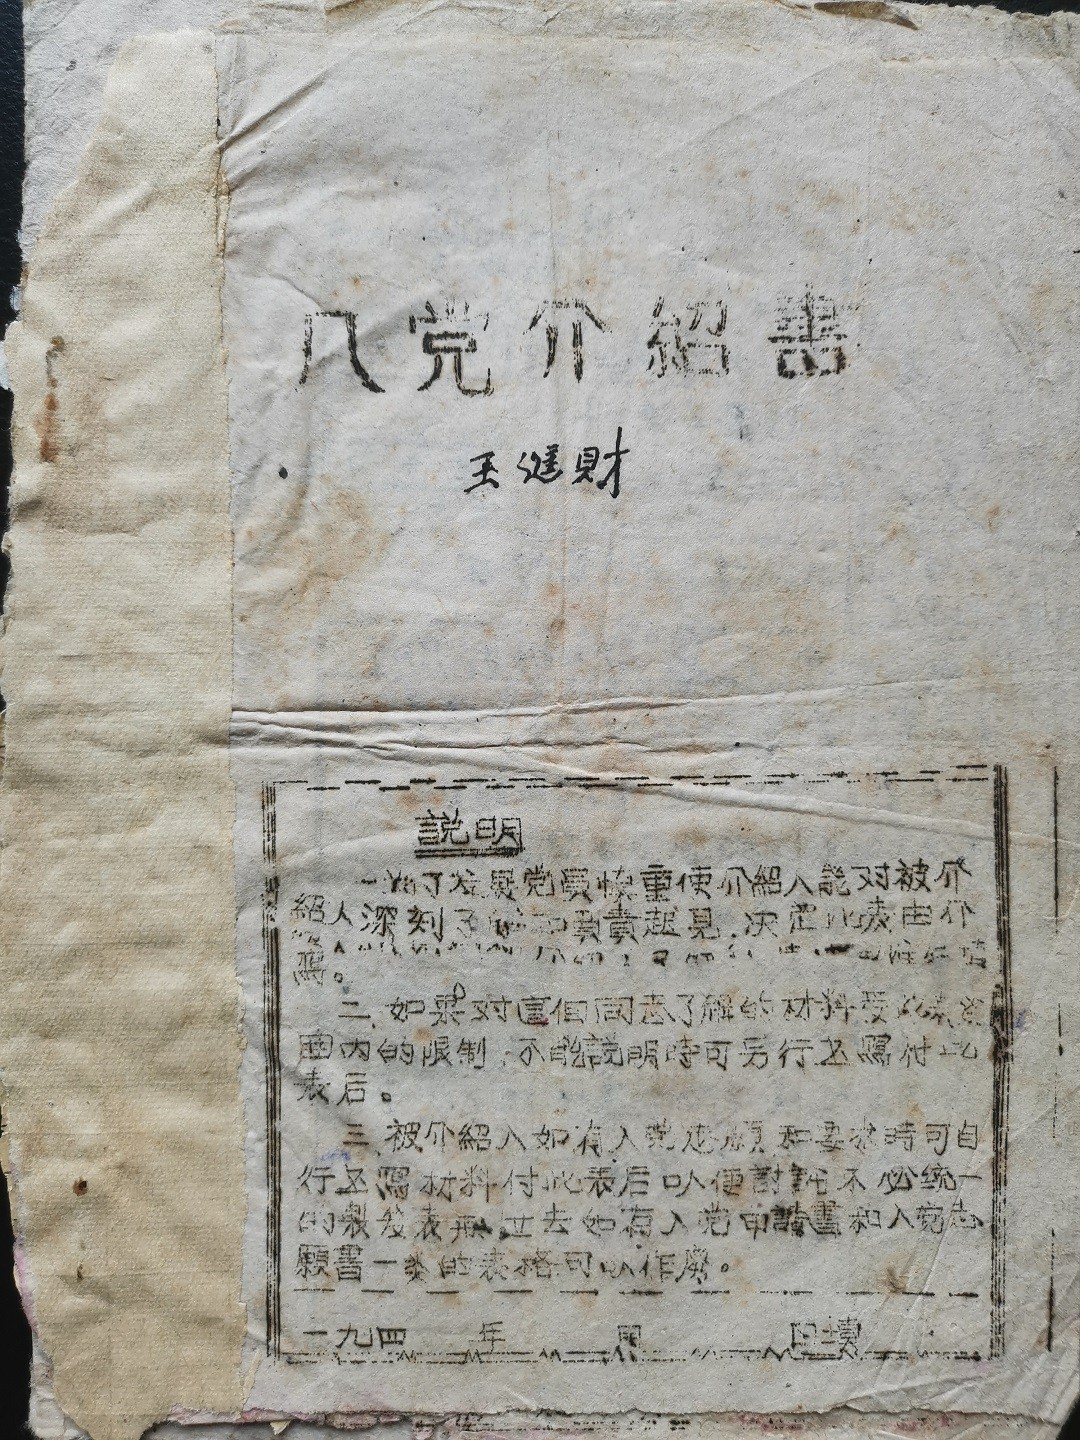 入党介紹書
王進財
説明
一、为了发展党員慎重使介紹人能对被介
紹人深刻了解和負責起見,决定此表由介
寫。
二、如果对這個同志了解的材料受此表范
圍内的限制,不能説明時可另行丕寫付此
表后。
三、被介紹人如有入党志願和要求時可自
行丕寫材料付此表后以便討論不必统一
的製发表冊,过去如有入党申請書和入党志
願書一类的表格可以作廃。
一九四 年 月 日填